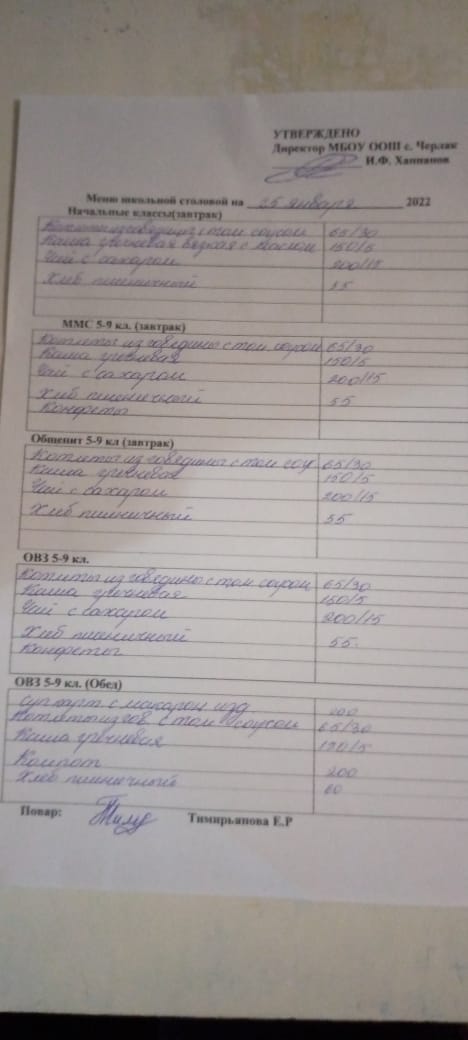 УТВЕРЖДЕНО
Директор МБОУ ООШ с. Черлак
И.Ф. Ханнанов
Меню школьной столовой на 25 января 2022
Начальные классы(завтрак)
Котлеты из говядины с том соусом 65/30
Каша гречневая вязкая с маслом 150/5
Чай с сахаром 200/15
Хлеб пшеничный
ММС 5-9 кл. (завтрак)
Котлеты из говядины с том соусом 65/30
Каша гречневая 150/5
Чай с сахаром 200/15
Хлеб пшеничный 55
Конфеты
Общепит 5-9 кл (завтрак)
Котлеты из говядины с том соу 65/30
Каша гречневая 150/5
Чай с сахаром 200/15
Хлеб пшеничный 55
ОВЗ 5-9 кл.
Котлеты из говядины с том соусом 65/30
Каша гречневая 150/5
Чай с сахаром 200/15
Хлеб пшеничный 55
Конфеты
ОВЗ 5-9 кл. (Обед)
с макарон изд 200
Котлеты из гов. с том соусом 65/30
Каша гречневая 150/5
Компот 200
Хлеб пшеничный 60
Повар: Тимирьянова Е.Р